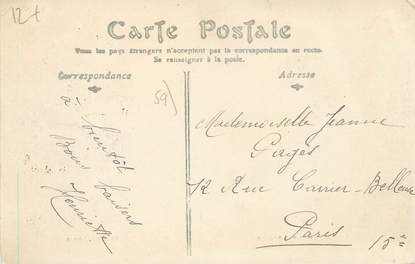 12+
Carte Postale
Tous les pays étrangers n'acceptent pas la correspondance au recto.
Se renseigner à la poste.
Correspondance
Adresse
59)
à bientôt
Bons baisers
Henriette
Mademoiselle Jeanne
12 Rue Carrier-Belleuse
Paris 15e